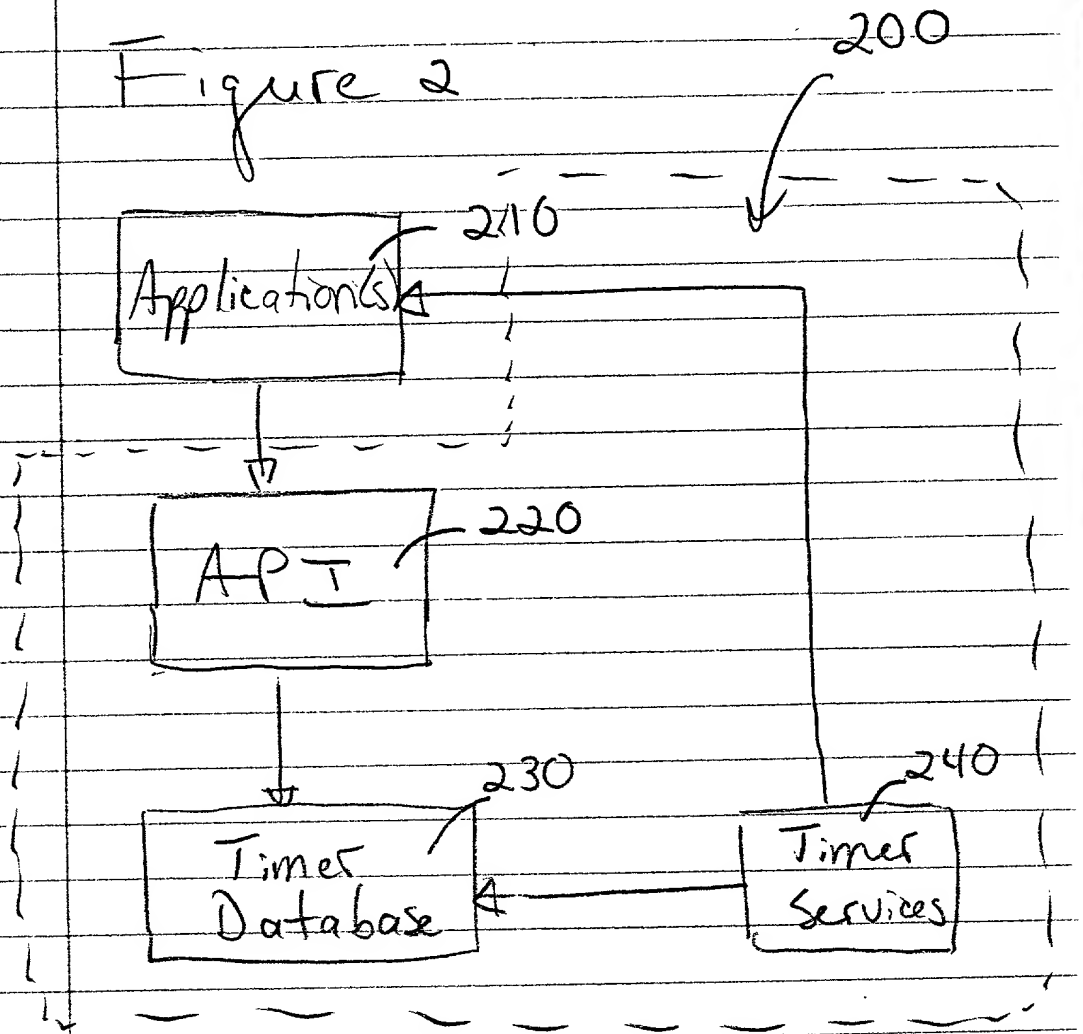 Figure 2
200
210
Application(s)
220
API
230
240
Timer
Database
Timer
Services